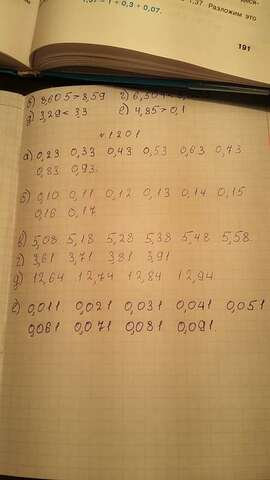 1,37 = 1 + 0,3 + 0,07.
1,37. Разложим это
191
в) 8,605 > 8,59
д) 3,29 < 3,3 е) 4,85 > 0,1
№ 1201
а) 0,23 0,33 0,43 0,53 0,63 0,73
0,83 0,93.
б) 0,10 0,11 0,12 0,13 0,14 0,15
0,16 0,17
в) 5,08 5,18 5,28 5,38 5,48 5,58
г) 3,61 3,71 3,81 3,91
д) 12,64 12,74 12,84 12,94
е) 0,011 0,021 0,031 0,041 0,051
0,061 0,071 0,081 0,091.